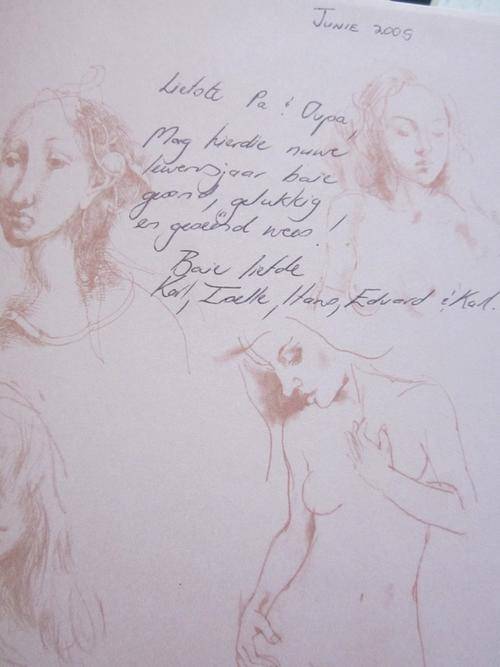 JUNIE 2005
Liefste Pa & Oupa,
Mag hierdie nuwe
lewensjaar baie
gesond, gelukkig
en geseënd wees!
Baie liefde
Karl, Izelle, Hans, Eduard & Karl.